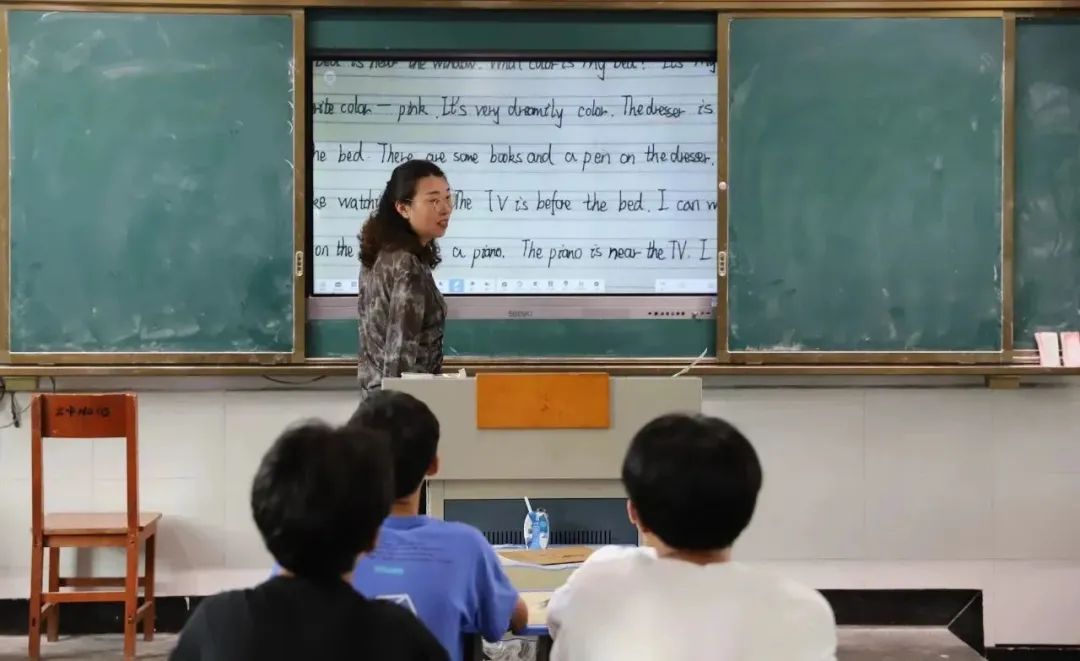 bed is near the window. What color is my bed? It's my
rite color — pink. It's very dreamtly color. The dresser is
he bed. There are some books and a pen on the dresser.
ke watchi The TV is before the bed. I can w
on the a piano. The piano is near the TV. I